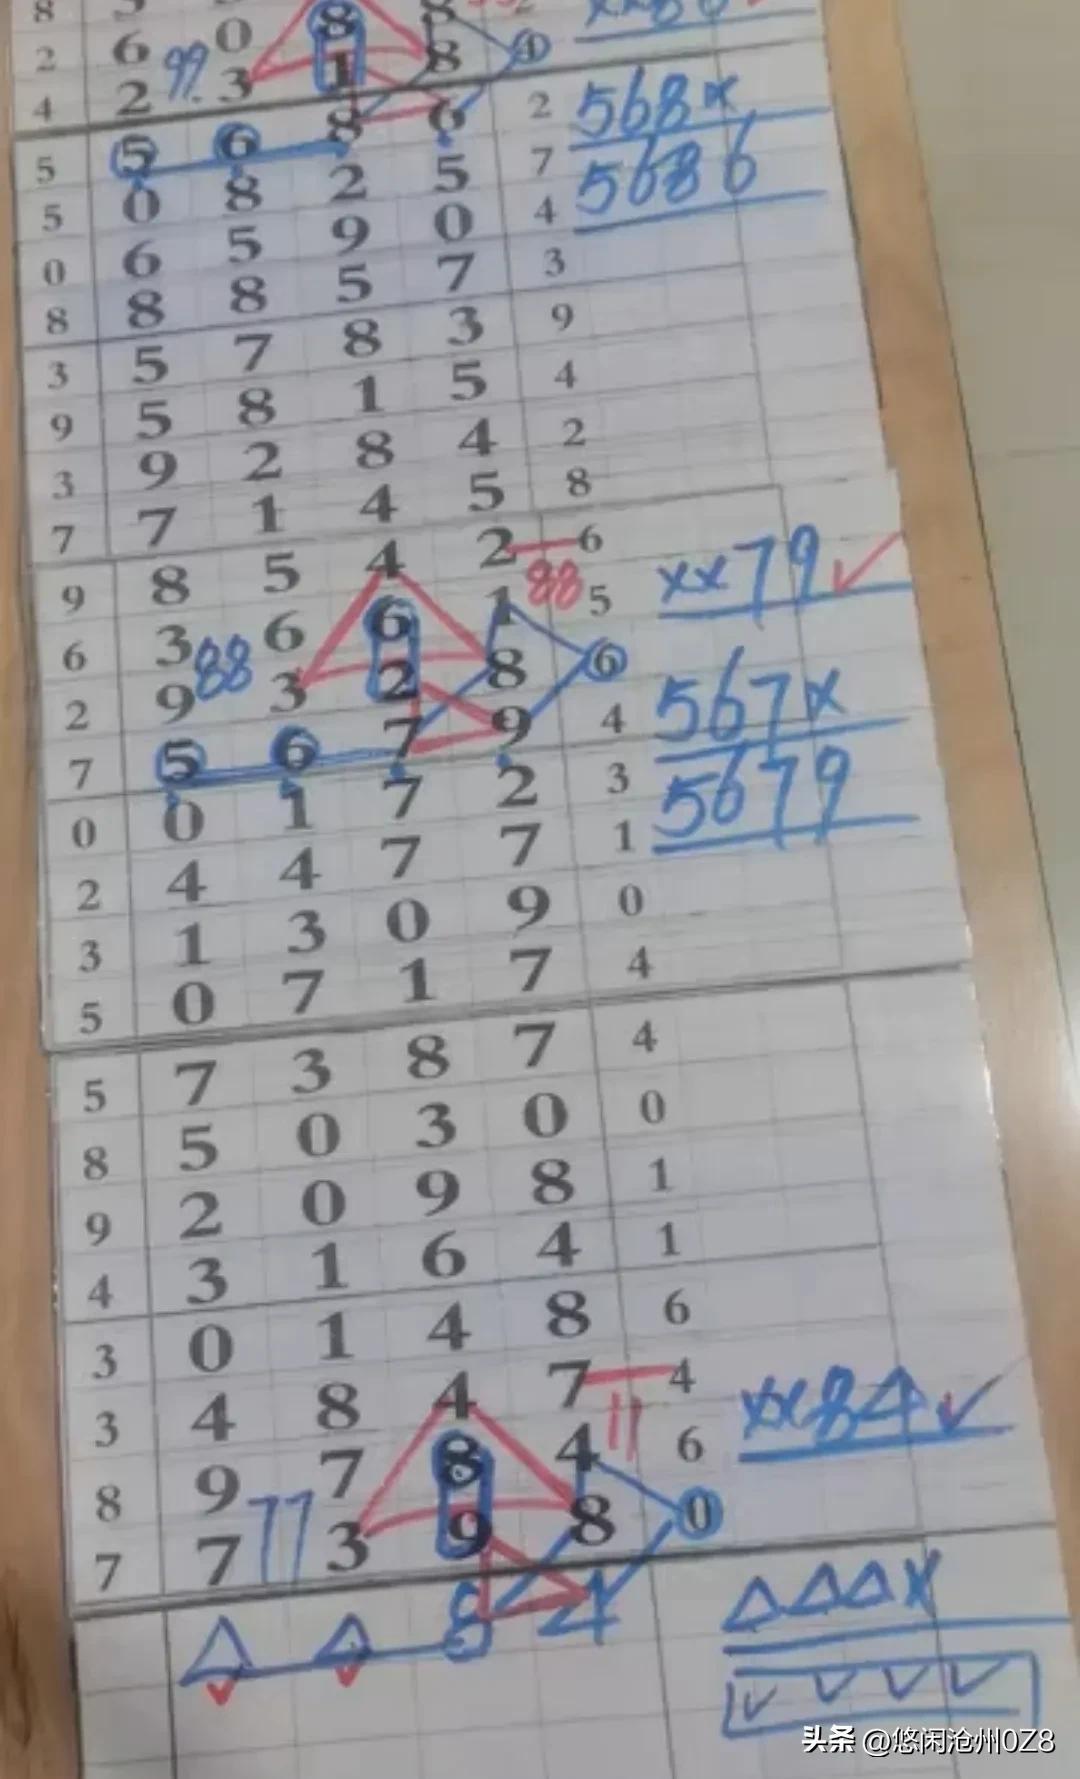 2 6 0 8 8 ①
4 2 99. 3 1 8
5 ⑤ ⑥ 8 6 2 568x
5 0 8 2 5 7 5686
0 6 5 9 0 4
8 8 8 5 7 3
3 5 7 8 3 9
9 5 8 1 5 4
3 9 2 8 4 2
7 7 1 4 5 8
9 8 5 4 2 6
6 3 6 6 1 88 5 xx79 ✓
2 9 88 3 2 8 ⑥
7 ⑤ ⑥ 7 9 4 567x
0 0 1 7 2 3 5679
2 4 4 7 7 1
3 1 3 0 9 0
5 0 7 1 7 4
5 7 3 8 7 4
8 5 0 3 0 0
9 2 0 9 8 1
4 3 1 6 4 1
3 0 1 4 8 6
3 4 8 4 7 4
8 9 7 8 4 11 6 xx84 ✓
7 7 77 3 9 8 ⓪
△ △ 8 4 △△△x
✓ ✓ ✓ ✓ ✓ ✓
头条 @悠闲沧州0Z8